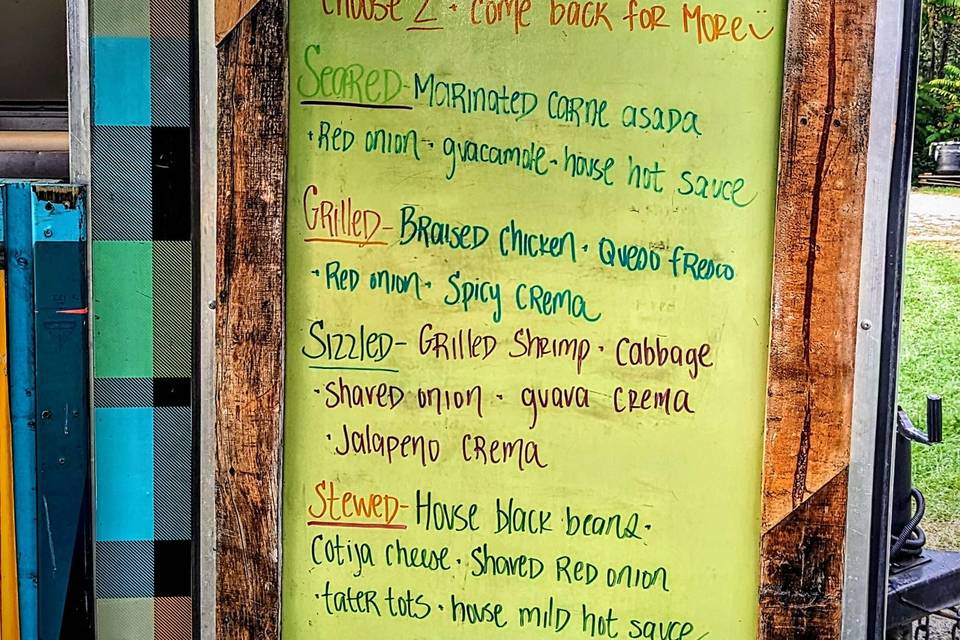 Choose 2 · Come back for More
Seared- Marinated Carne asada
· Red onion · guacamole · house hot sauce
Grilled- Braised Chicken · Queso fresco
· Red onion · Spicy Crema
Sizzled- Grilled Shrimp · Cabbage
· shaved onion · guava crema
· Jalapeno Crema
Stewed- House black beans ·
Cotija cheese · Shaved Red onion
· tater tots · house mild hot sauce